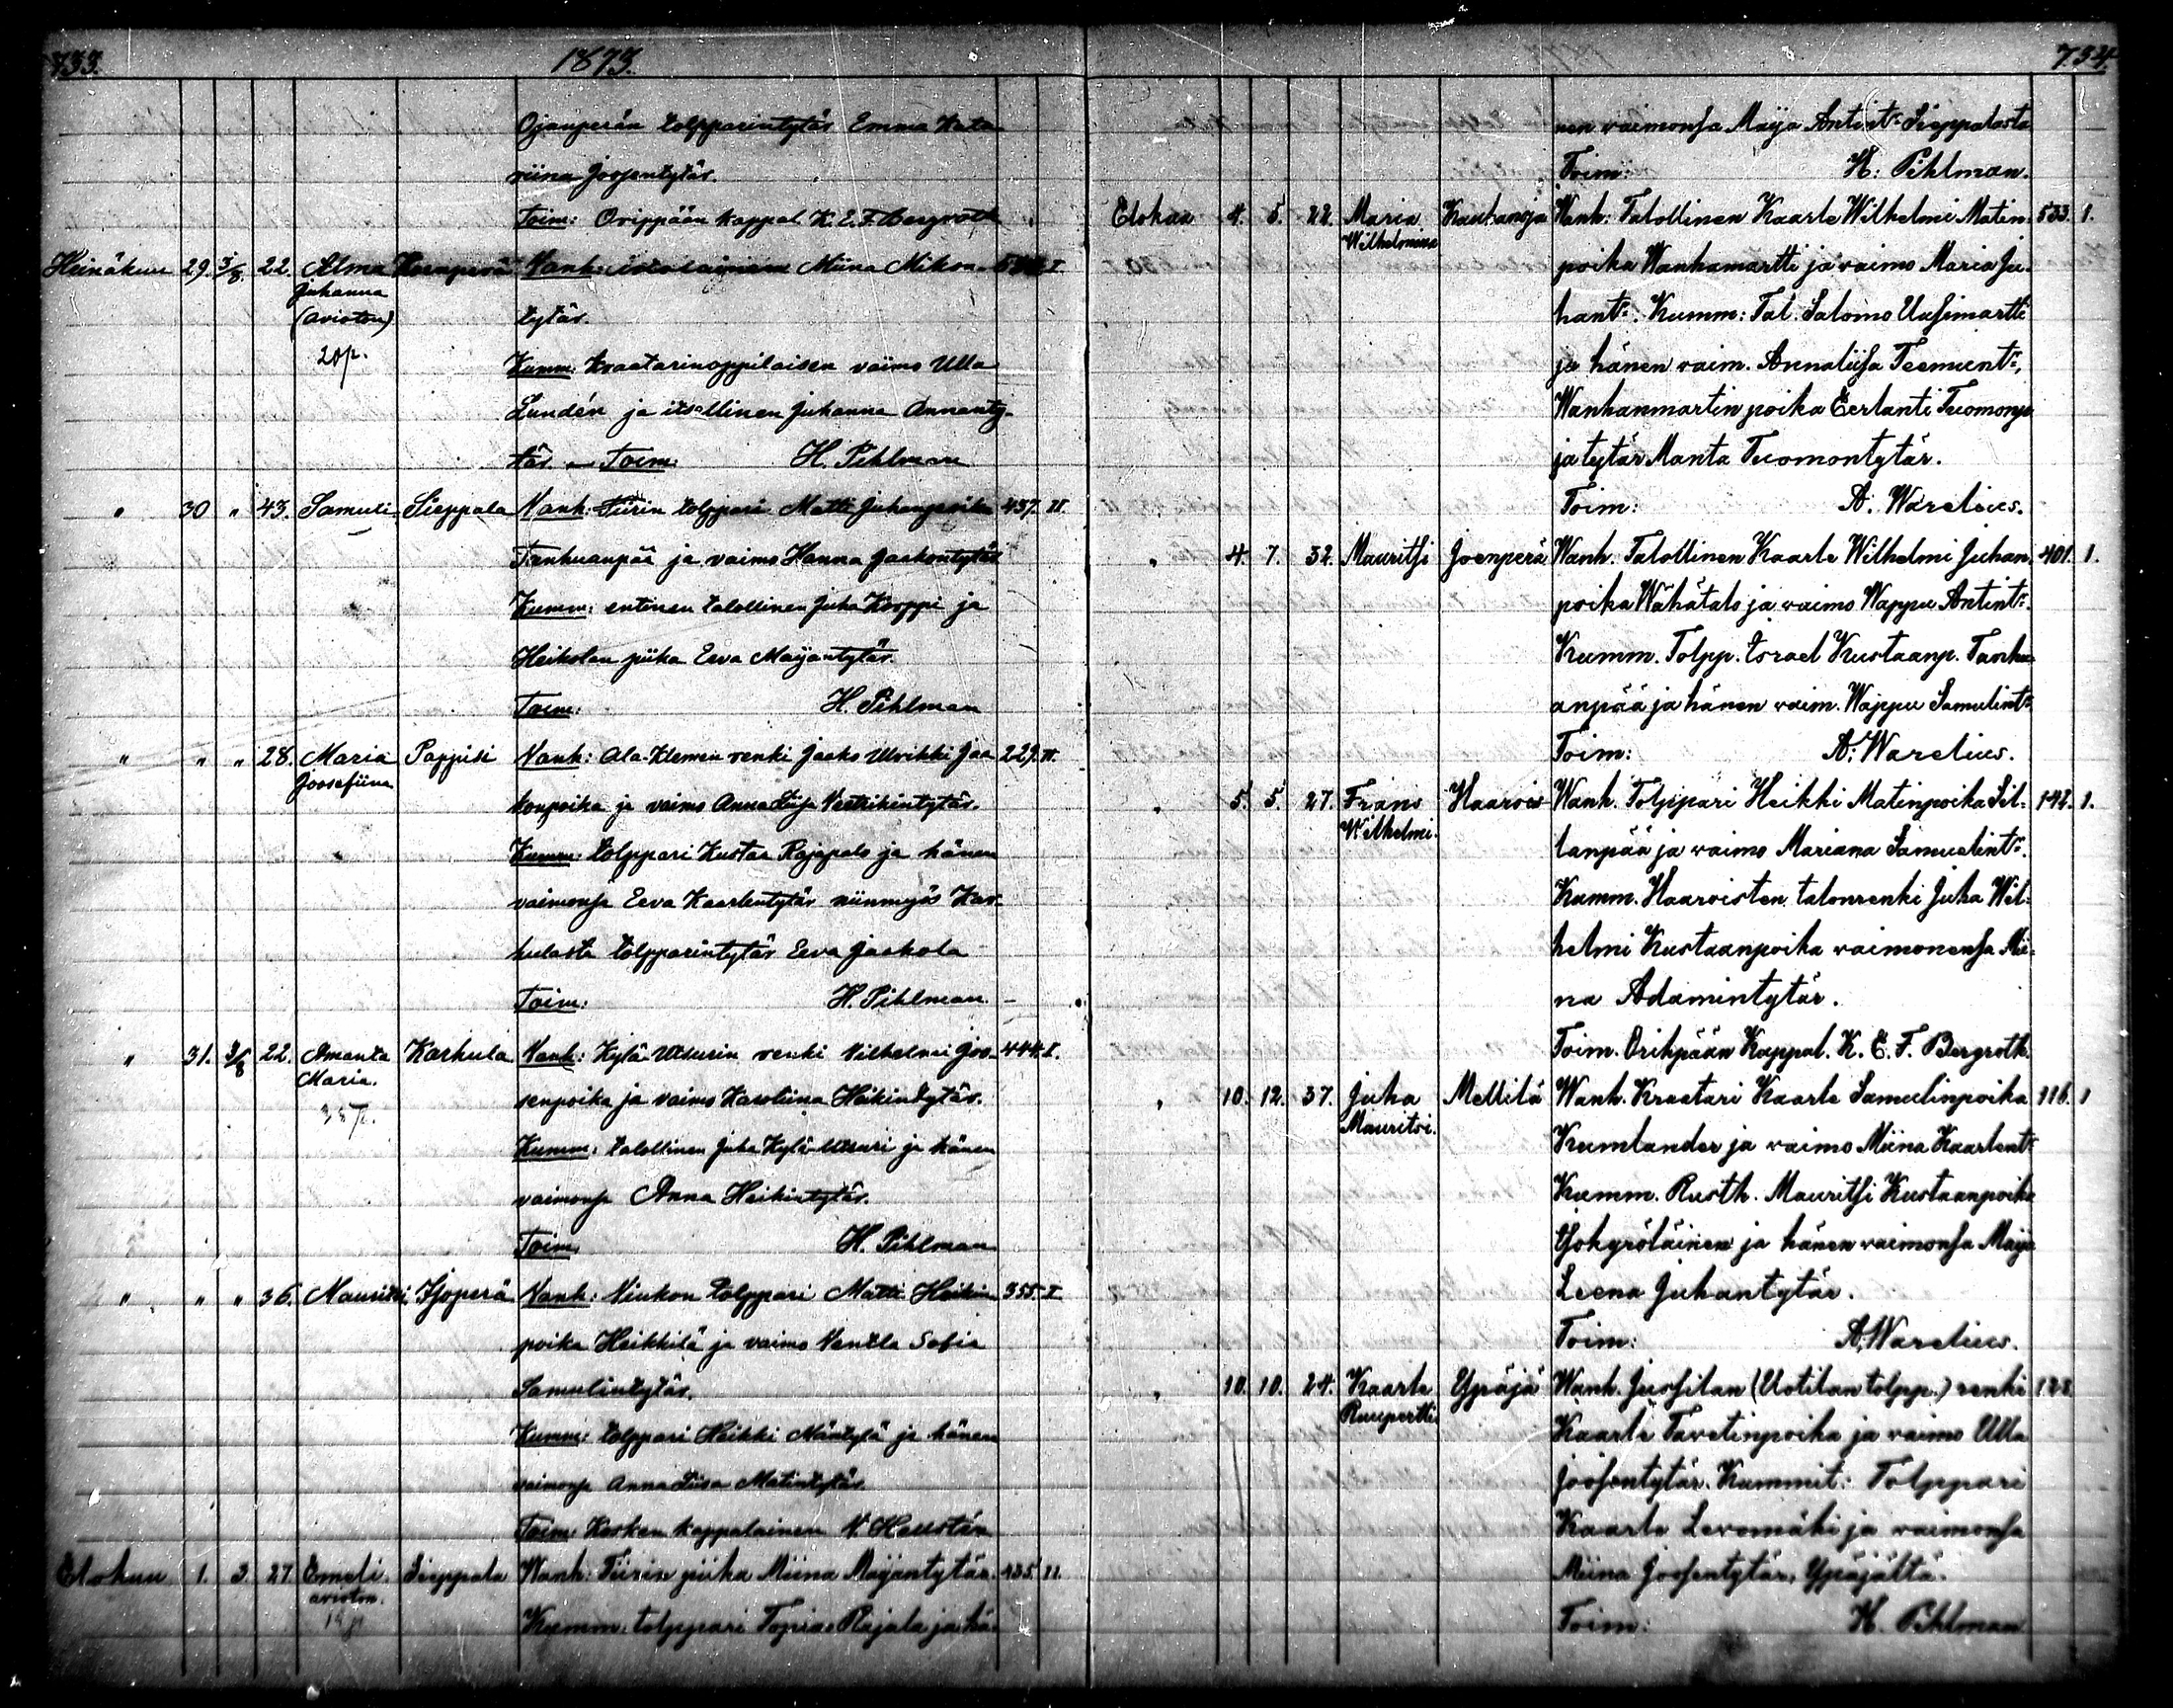 733. 1873.
Ojanperän tolpparintytär Emma Kata
riina Joosentytär.
Toim: Orippään kappal. K. E. F. Bergroth
Heinäkuu 29. 3/8. 22. Alma Koenperä Vanh: itsellinen Miina Mikon- I
Juhanna
(avioton) tytär.
20p. Kumm: Kraatarinoppilaisen vaimo Ulla
Lundén ja itsellinen Juhanna Annanty-
tär. – Toim: H. Pihlman
" 30 " 43. Samuli Sieppala Vanh: Tiirin tolppari Matti Juhanpoika 437. II.
Tanhuanpää ja vaimo Hanna Jaakontytär
Kumm: entinen talollinen Juha Korppi ja
Heikolan piika Eeva Maijantytär.
Toim: H. Pihlman
" " " 28. Maria Pappisi Vanh: Ala-Klemen renki Jaako Ulrikki Jaa 229. II.
Joosefiina
konpoika ja vaimo Anna Liisa Veetrikintytär.
Kumm: tolppari Kustaa Rajapalo ja hänen
vaimonsa Eeva Kaarlentytär niinmyös Kar-
hulasta tolpparintytär Eeva Jaakola
Toim: H. Pihlman. –
" 31. 3/8 22. Amanta Karhula Vanh: Kylä-Uusurin renki Vilhelmi Joo- 444. I.
Maria.
38p. senpoika ja vaimo Karoliina Heikintytär.
Kumm: talollinen Juha Kylä-Uusuri ja hänen
vaimonsa Anna Heikintytär.
Toim: H. Pihlman
" " " 36. Mauritsi Isoperä Vanh: Niukon tolppari Matti Heikin 355. I
poika Heikkilä ja vaimo Ventla Sofia
Samulintytär.
Kumm: tolppari Heikki Mäntylä ja hänen
vaimonsa Anna Liisa Matintytär.
Toim: Kosken kappalainen V. Hellstén
Elokuu 1. 3. 27. Emeli Sieppala Wanh: Tiirin piika Miina Maijantytär. 435. II.
avioton.
19p Kumm: tolppari Topias Rajala ja hä-
734.
nen vaimonsa Maija Antint:r Sieppalasta
Toim: H. Pihlman.
Elokuu 4. 5. 22. Maria Kauhanoja Wanh: Talollinen Kaarle Wilhelmi Matin 533. 1.
Wilhelmina
poika Wanhamartti ja vaimo Maria Ju-
hant:r. Kumm: Tal. Salomo Uusimartti
ja hänen vaim. Annaliisa Teemunt:r,
Wanhanmartin poika Eerlanti Tuomonp.
ja tytär Manta Tuomontytär.
Toim: A. Warelius.
" 4. 7. 32. Mauritsi Joenperä Wanh. Talollinen Kaarle Wilhelmi Juhan 401. 1.
poika Wähätalo ja vaimo Wappu Antint:r.
Kumm. Tolpp. Israel Kustaanp. Tanhu-
anpää ja hänen vaim. Wappu Samulint:r
Toim: A. Warelius.
" 5. 5. 27. Frans Haarois Wanh. Tolppari Heikki Matinpoika Sil- 142. 1.
Wilhelmi.
lanpää ja vaimo Mariana Samuelint:r.
Kumm. Haaroisten talonrenki Juha Wil-
helmi Kustaanpoika vaimonensa Mii-
na Adamintytär.
Toim. Oripään Kappal. K. E. F. Bergroth.
" 10. 12. 37. Juha Mellilä Wanh. Kraatari Kaarle Samulinpoika 116. 1
Mauritsi.
Kumlander ja vaimo Miina Kaarlent:r
Kumm. Rusth. Mauritsi Kustaanpoika
Isokyröläinen ja hänen vaimonsa Maija
Leena Juhantytär.
Toim: A. Warelius.
" 10. 10. 24. Kaarle Ypäjä Wanh. Jussilan (Uotilan tolpp.) renki 128
Ruupertti
Kaarle Tavetinpoika ja vaimo Ulla
Joosentytär. Kummit: Tolppari
Kaarle Levomäki ja vaimonsa
Miina Joosentytär, Ypäjältä.
Toim: H. Pihlman